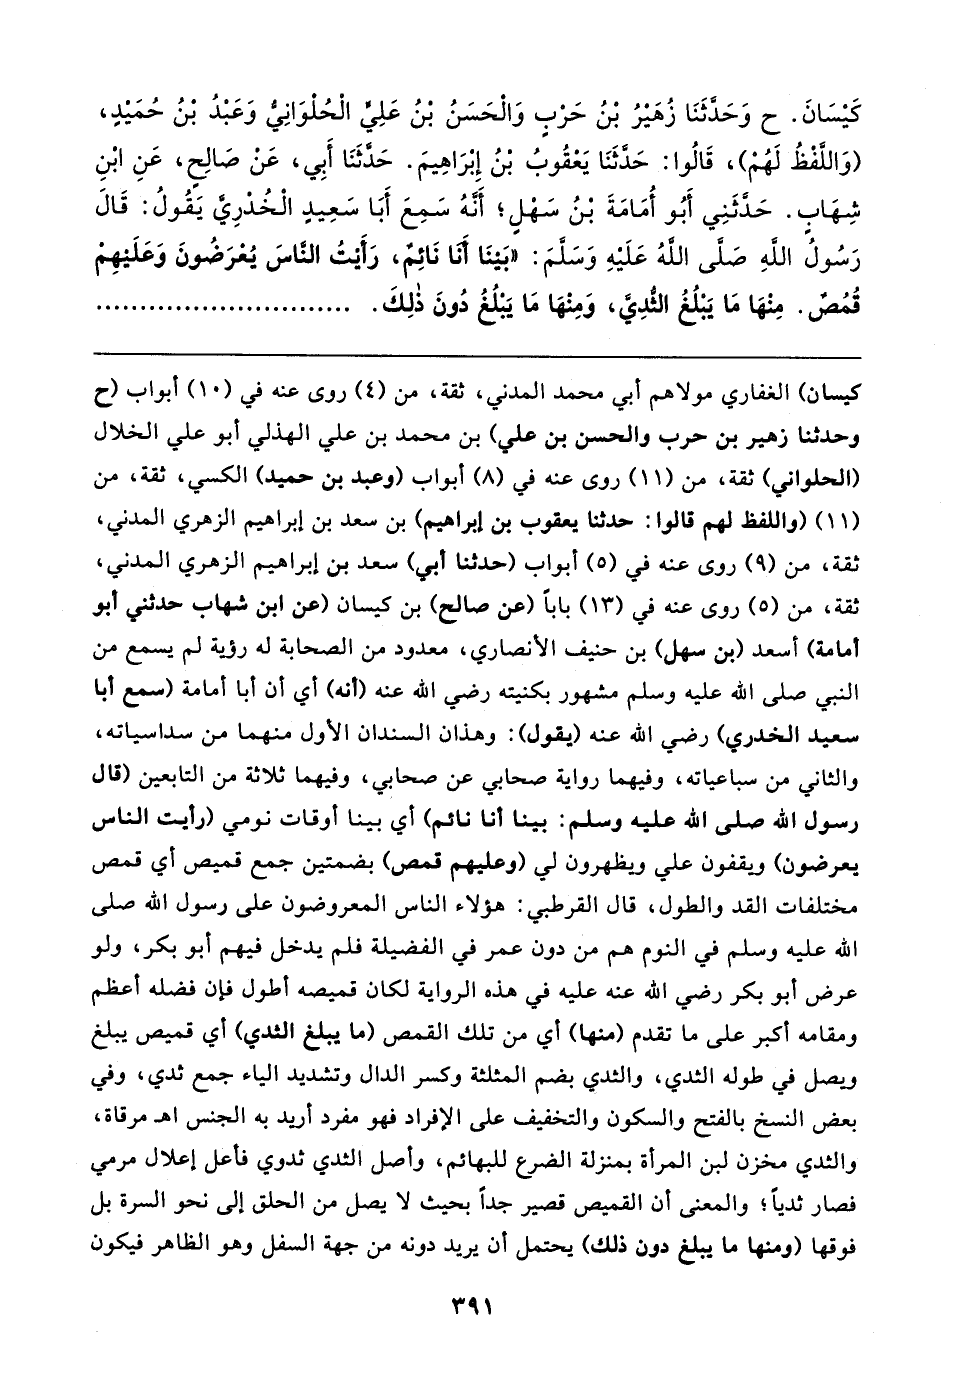 كَيْسَانَ. ح وَحَدَّثَنَا زُهَيْرُ بْنُ حَرْبٍ وَالْحَسَنُ بْنُ عَلِيٍّ الْحُلْوَانِيُّ وَعَبْدُ بْنُ حُمَيْدٍ،
(وَاللَّفْظُ لَهُمْ)، قَالُوا: حَدَّثَنَا يَعْقُوبُ بْنُ إِبْرَاهِيمَ. حَدَّثَنَا أَبِي، عَنْ صَالِحٍ، عَنِ ابْنِ
شِهَابٍ. حَدَّثَنِي أَبُو أُمَامَةَ بْنُ سَهْلٍ؛ أَنَّهُ سَمِعَ أَبَا سَعِيدٍ الْخُدْرِيَّ يَقُولُ: قَالَ
رَسُولُ اللَّهِ صَلَّى اللَّهُ عَلَيْهِ وَسَلَّمَ: «بَيْنَا أَنَا نَائِمٌ، رَأَيْتُ النَّاسَ يُعْرَضُونَ وَعَلَيْهِمْ
قُمُصٌ. مِنْهَا مَا يَبْلُغُ الثُّدِيَّ، وَمِنْهَا مَا يَبْلُغُ دُونَ ذٰلِكَ. ............................
كيسان) الغفاري مولاهم أبي محمد المدني، ثقة، من (٤) روى عنه في (١٠) أبواب (ح
وحدثنا زهير بن حرب والحسن بن علي) بن محمد بن علي الهذلي أبو علي الخلال
(الحلواني) ثقة، من (١١) روى عنه في (٨) أبواب (وعبد بن حميد) الكسي، ثقة، من
(١١) (واللفظ لهم قالوا: حدثنا يعقوب بن إبراهيم) بن سعد بن إبراهيم الزهري المدني،
ثقة، من (٩) روى عنه في (٥) أبواب (حدثنا أبي) سعد بن إبراهيم الزهري المدني،
ثقة، من (٥) روى عنه في (١٣) باباً (عن صالح) بن كيسان (عن ابن شهاب حدثني أبو
أمامة) أسعد (بن سهل) بن حنيف الأنصاري، معدود من الصحابة له رؤية لم يسمع من
النبي صلى الله عليه وسلم مشهور بكنيته رضي الله عنه (أنه) أي أن أبا أمامة (سمع أبا
سعيد الخدري) رضي الله عنه (يقول): وهذان السندان الأول منهما من سداسياته،
والثاني من سباعياته، وفيهما رواية صحابي عن صحابي، وفيهما ثلاثة من التابعين (قال
رسول الله صلى الله عليه وسلم: بينا أنا نائم) أي بينا أوقات نومي (رأيت الناس
يعرضون) ويقفون علي ويظهرون لي (وعليهم قمص) بضمتين جمع قميص أي قمص
مختلفات القد والطول، قال القرطبي: هؤلاء الناس المعروضون على رسول الله صلى
الله عليه وسلم في النوم هم من دون عمر في الفضيلة فلم يدخل فيهم أبو بكر، ولو
عرض أبو بكر رضي الله عنه عليه في هذه الرواية لكان قميصه أطول فإن فضله أعظم
ومقامه أكبر على ما تقدم (منها) أي من تلك القمص (ما يبلغ الثدي) أي قميص يبلغ
ويصل في طوله الثدي، والثدي بضم المثلثة وكسر الدال وتشديد الياء جمع ثدي، وفي
بعض النسخ بالفتح والسكون والتخفيف على الإفراد فهو مفرد أريد به الجنس اهـ مرقاة،
والثدي مخزن لبن المرأة بمنزلة الضرع للبهائم، وأصل الثدي ثدوي فأعل إعلال مرمي
فصار ثدياً؛ والمعنى أن القميص قصير جداً بحيث لا يصل من الحلق إلى نحو السرة بل
فوقها (ومنها ما يبلغ دون ذلك) يحتمل أن يريد دونه من جهة السفل وهو الظاهر فيكون
٣٩١